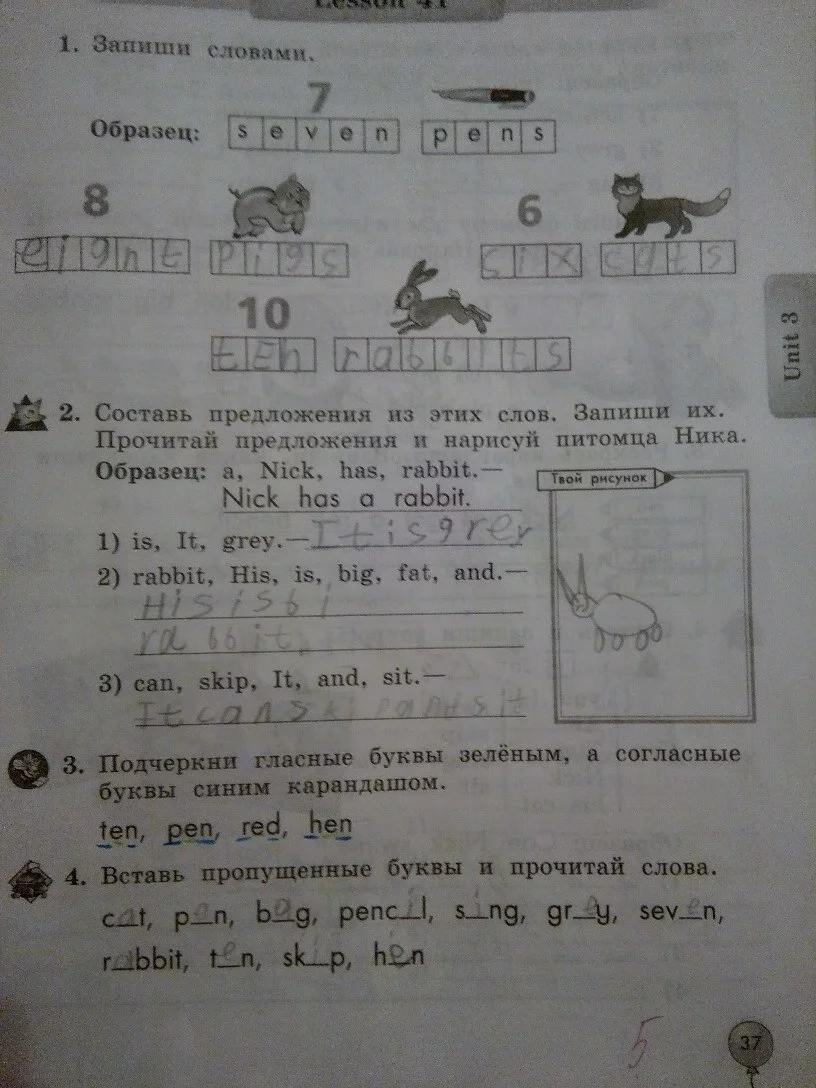 Lesson 41
1. Запиши словами.
7
Образец: seven pens
8 6
eight pigs six cats
10
ten rabbits
Unit 3
2. Составь предложения из этих слов. Запиши их.
Прочитай предложения и нарисуй питомца Ника.
Образец: a, Nick, has, rabbit.—
Nick has a rabbit.
Твой рисунок
1) is, It, grey.— It is grey
2) rabbit, His, is, big, fat, and.—
His is bi
rabbit,
3) can, skip, It, and, sit.—
It can ski pand sit
3. Подчеркни гласные буквы зелёным, а согласные
буквы синим карандашом.
ten, pen, red, hen
4. Вставь пропущенные буквы и прочитай слова.
cat, pen, bag, pencil, sing, grey, seven,
rabbit, ten, skip, hen
5
37